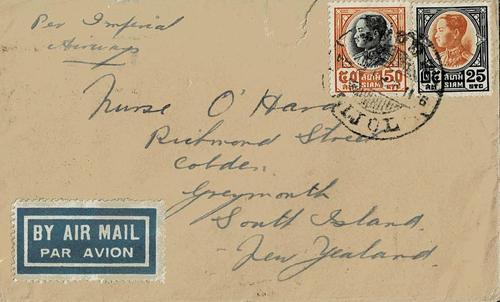 Per Imperial
Airways
Nurse O'Hara
Richmond Street
Cobden
Greymouth
South Island.
New Zealand.
BY AIR MAIL
PAR AVION
๕๐ สต. 50
SIAM STG
สต. 25
SIAM STG